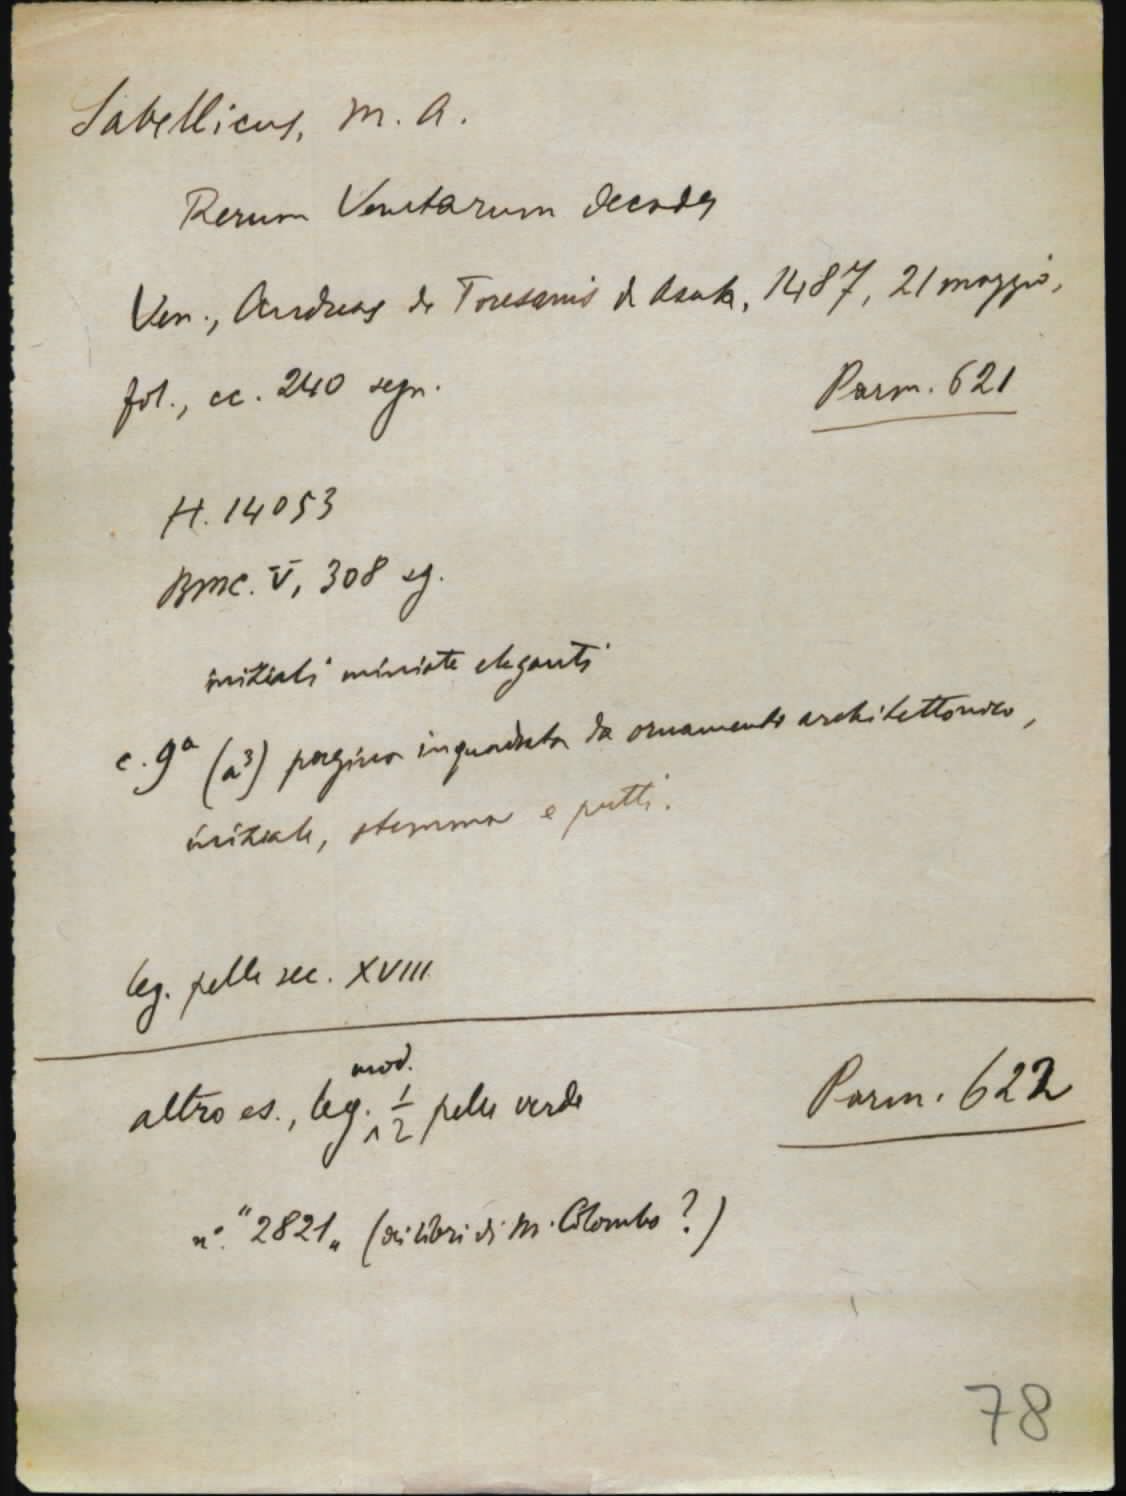 Sabellicus, M. A.
Rerum Venetarum decades
Ven., Andreas de Toresanis de Asula, 1487, 21 maggio,
fol., cc. 240 segn.
Parm. 621
H. 14053
BMC. V, 308 sg.
iniziali miniate eleganti
c. 9ª (a³) pagina inquadrata da ornamento architettonico,
iniziale, stemma e putti.
leg. pelle sec. XVIII
altro es., leg. mod. 1/2 pelle verde
Parm. 622
n°. "2821" (dei libri di M. Colombo?)
78